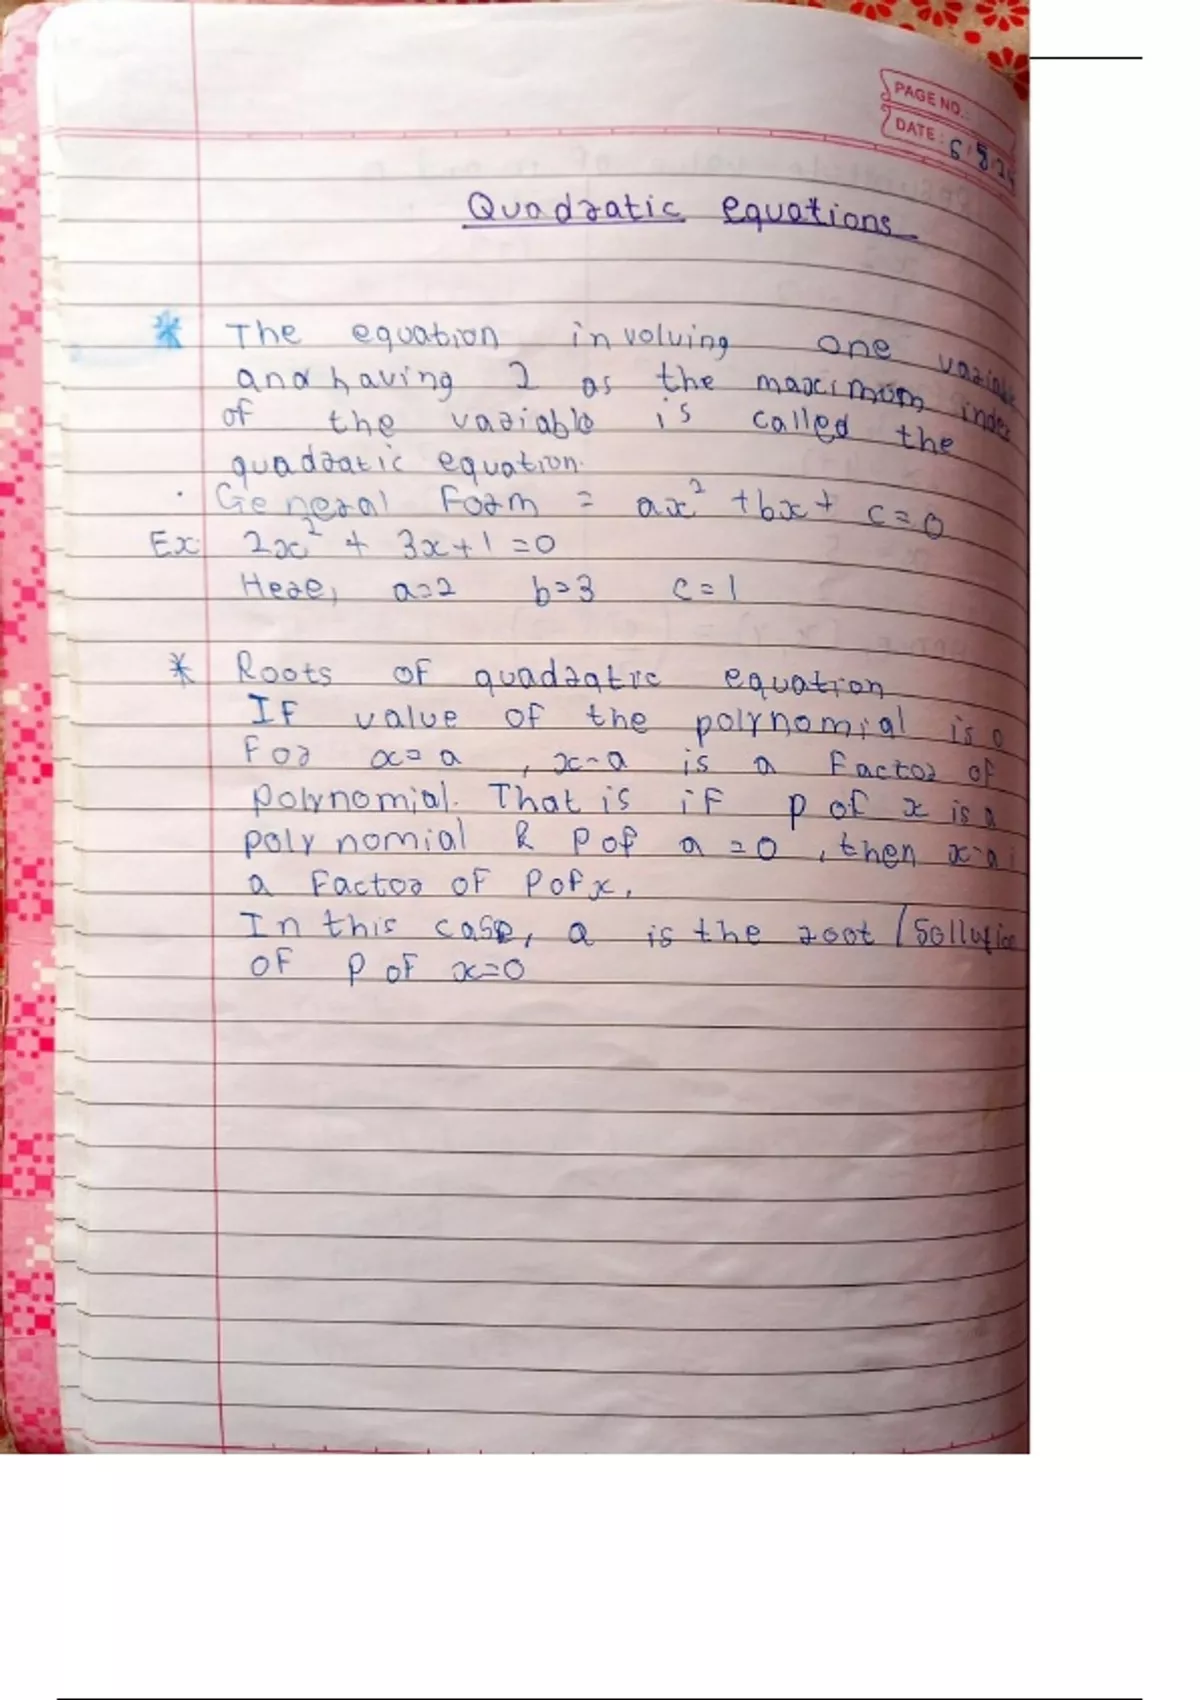 PAGE NO.:
DATE: 6.8.24
Quadratic equations
* The equation involving one variable
and having 2 as the maximum index
of the variable is called the
quadratic equation.
· General Form = ax² + bx + c = 0
Ex: 2x² + 3x + 1 = 0
Here, a = 2 b = 3 c = 1
* Roots of quadratic equation
If value of the polynomial is 0
For x = a , x - a is a Factor of
polynomial. That is if p of x is a
polynomial & p of a = 0 , then x - a i
a Factor of P of x.
In this case, a is the root / Sollution
of P of x = 0